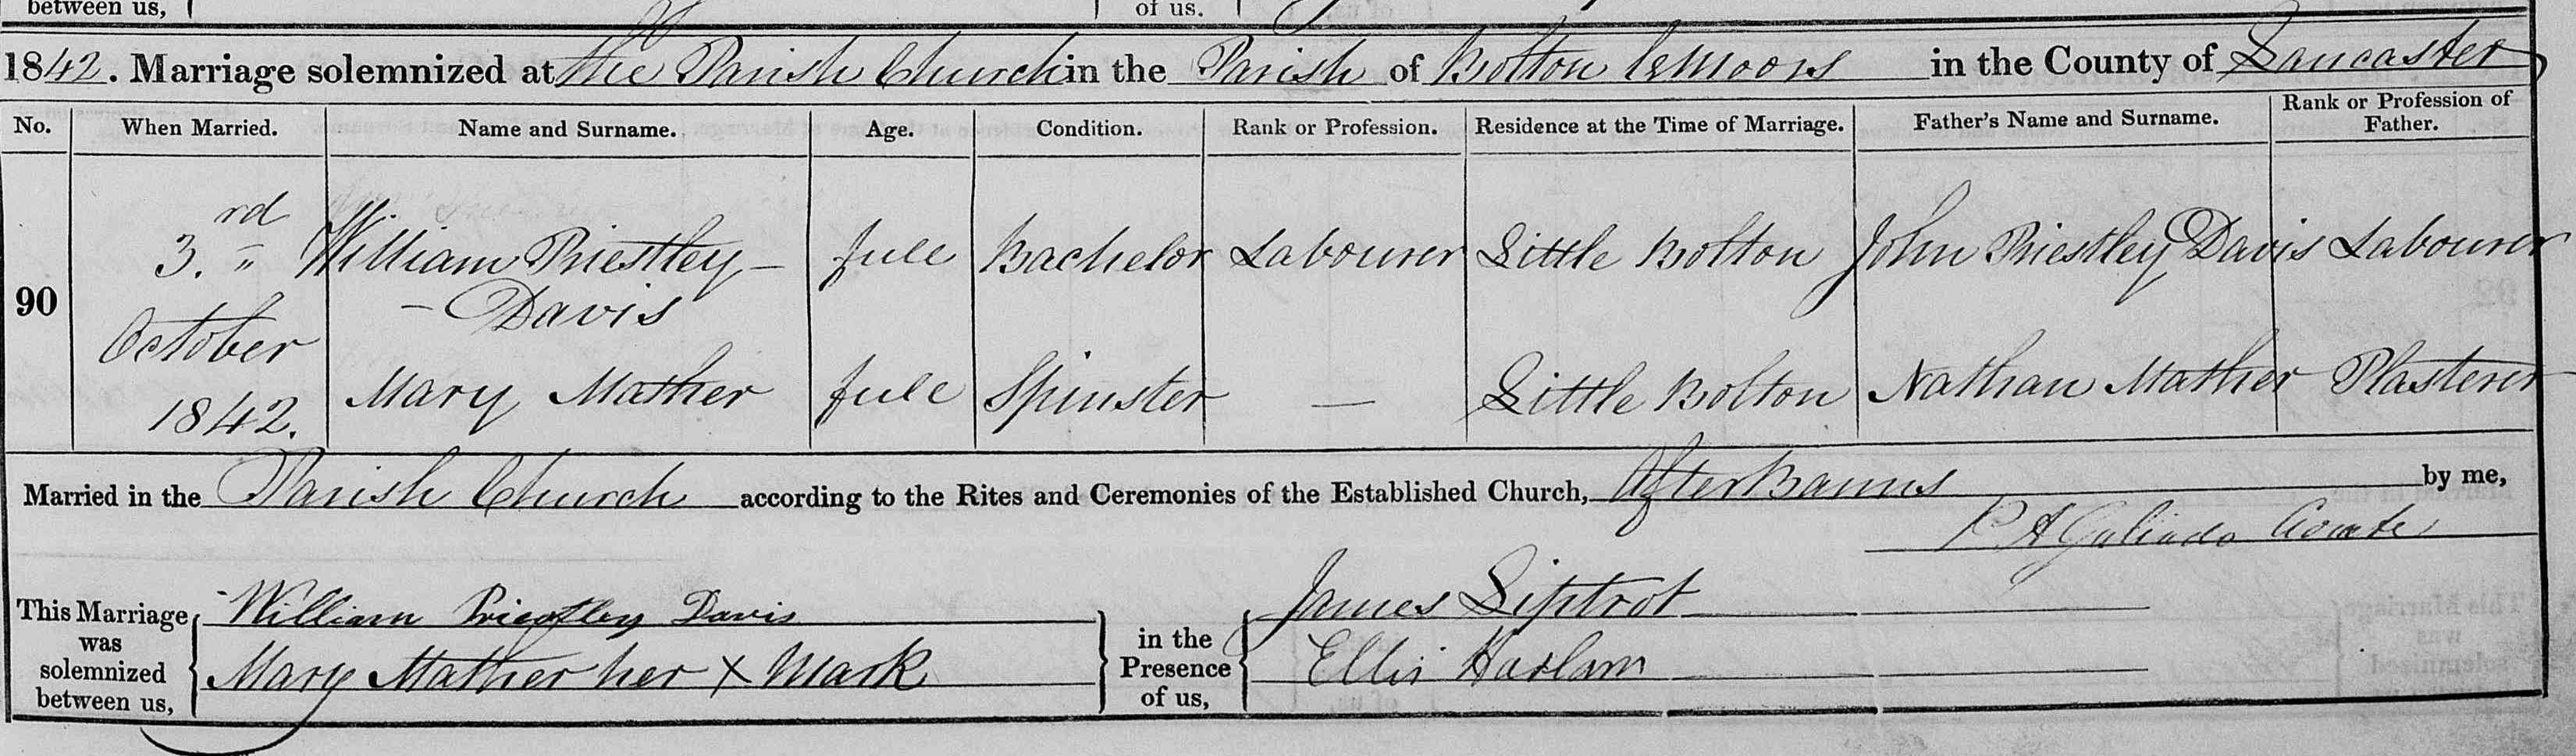 between us,
of us.
1842. Marriage solemnized at the Parish Church in the Parish of Bolton le Moors in the County of Lancaster
No. When Married. Name and Surname. Age. Condition. Rank or Profession. Residence at the Time of Marriage. Father's Name and Surname. Rank or Profession of Father.
90
3.rd October 1842.
William Priestley - - Davis full Bachelor Labourer Little Bolton John Priestley Davis Labourer
Mary Mather full Spinster — Little Bolton Nathan Mather Plasterer
Married in the Parish Church according to the Rites and Ceremonies of the Established Church, After Banns by me,
P A Galindo
This Marriage was solemnized between us,
William Priestley Davis
Mary Mather her X Mark
in the Presence of us,
James Liptrot
Ellis Haslam